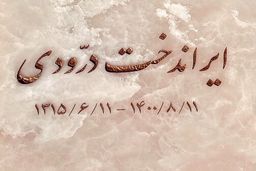 ایراندخت درّودی
۱۳۱۵/۶/۱۱ - ۱۴۰۰/۸/۱۱